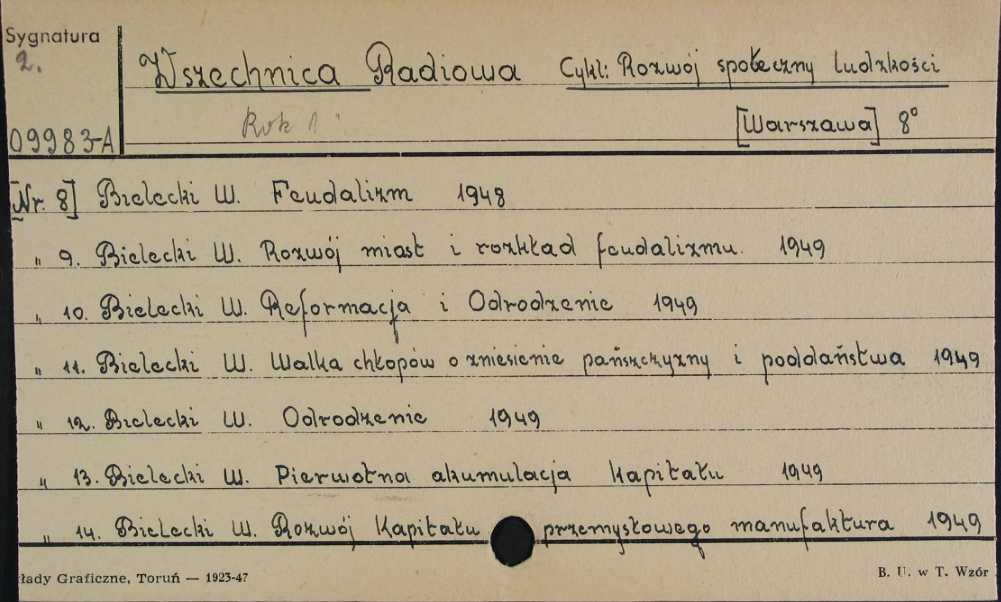 Sygnatura
2.
09983-A
Wszechnica Radiowa Cykl: Rozwój społeczny ludzkości
Rok 1
[Warszawa] 8°
[Nr. 8] Bielecki W. Feudalizm 1948
„ 9. Bielecki W. Rozwój miast i rozkład feudalizmu. 1949
„ 10. Bielecki W. Reformacja i Odrodzenie 1949
„ 11. Bielecki W. Walka chłopów o zniesienie pańszczyzny i poddaństwa 1949
„ 12. Bielecki W. Odrodzenie 1949
„ 13. Bielecki W. Pierwotna akumulacja kapitału 1949
„ 14. Bielecki W. Rozwój kapitału przemysłowego manufaktura 1949
łady Graficzne, Toruń — 1923-47
B. U. w T. Wzór